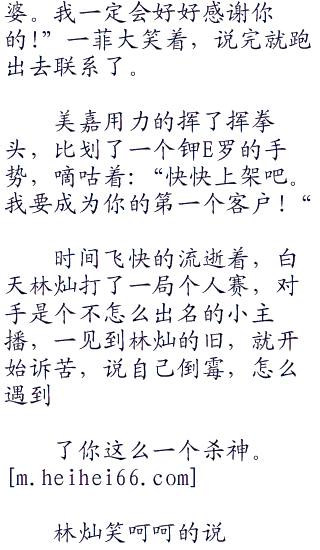 婆。我一定会好好感谢你
的!”一菲大笑着，说完就跑
出去联系了。
美嘉用力的挥了挥拳
头，比划了一个钾E罗的手
势，嘀咕着:“快快上架吧。
我要成为你的第一个客户！“
时间飞快的流逝着，白
天林灿打了一局个人赛，对
手是个不怎么出名的小主
播，一见到林灿的旧，就开
始诉苦，说自己倒霉，怎么
遇到
了你这么一个杀神。
[m.heihei66.com]
林灿笑呵呵的说